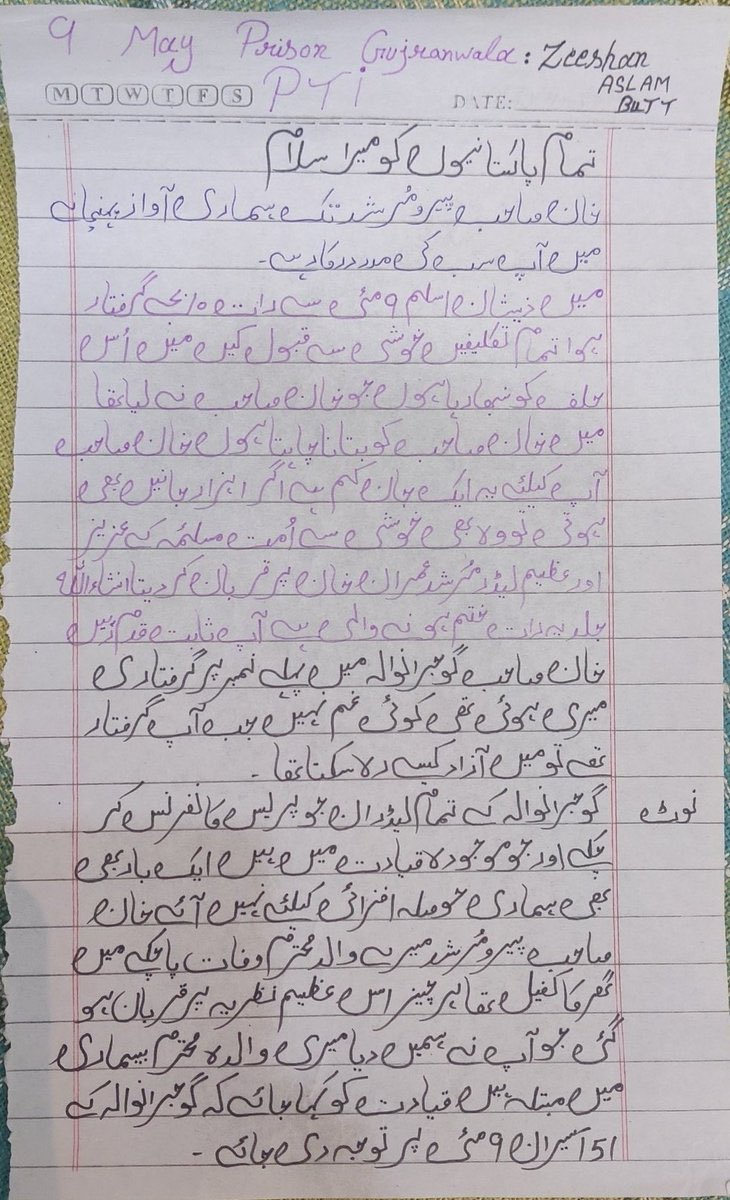 9 May Prison Gujranwala : Zeeshan
ASLAM
BUTT
M T W T F S
PTI
DATE:
تمام پاکستانیوں کو میرا سلام
خان صاحب پیرومُرشد تک ہماری آواز پہنچانے
میں آپ سب کی مدد درکار ہے۔
میں ذیشان اسلم 9 مئی سے رات 10 بجے گرفتار
ہوا تمام تکلیفیں خوشی سے قبول کیں میں اُس
حلف کو نبھا رہا ہوں جو خان صاحب نے لیا تھا
میں خان صاحب کو بتانا چاہتا ہوں خان صاحب
آپ کیلئے یہ ایک جان کم ہے اگر 1 ہزار جانیں بھی
ہوتی تو وہ بھی خوشی سے اُمت مسلمہ کے عزیز
اور عظیم لیڈر مُرشد عمران خان پر قربان کر دیتا انشاءاللہ
جلد یہ رات ختم ہونے والی ہے آپ ثابت قدم رہیں
خان صاحب گوجرانوالہ میں پہلے نمبر پر گرفتاری
میری ہوئی تھی کوئی غم نہیں جب آپ گرفتار
تھے تو میں آزاد کیسے رہ سکتا تھا۔
نوٹ گوجرانوالہ کے تمام لیڈران جو پریس کانفرنس کر
چکے اور جو موجودہ قیادت میں ہیں ایک بار بھی
بھی ہماری حوصلہ افزائی کیلئے نہیں آئے خان
صاحب پیرومُرشد میرے والد محترم وفات پا چکے میں
گھر کا کفیل تھا ہر چیز اس عظیم نظریہ پر قربان ہو
گئی جو آپ نے ہمیں دیا میری والدہ محترم بیماری
میں مبتلہ ہیں قیادت کو کہا جائے کہ گوجرانوالہ کے
51 اسیران 9 مئی پر توجہ دی جائے۔